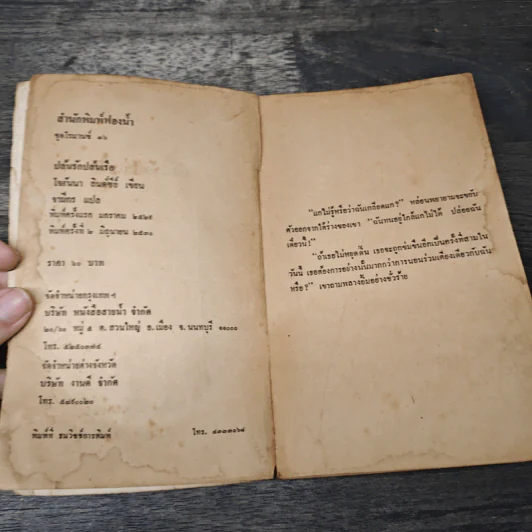 สำนักพิมพ์ฟองน้ำ
ชุดโรมานซ์ ๑๖
ปล้นรักปล้นเรือ
โจฮันนา ลินด์ซีย์ เขียน
จามีกร แปล
พิมพ์ครั้งแรก มกราคม ๒๕๒๙
พิมพ์ครั้งที่ ๒ มิถุนายน ๒๕๓๑
ราคา ๖๐ บาท
จัดจำหน่ายกรุงเทพ ฯ
บริษัท หนังสือสายน้ำ จำกัด
๒๐/๖๐ หมู่ ๕ ต. สวนใหญ่ อ. เมือง จ. นนทบุรี ๑๑๐๐๐
โทร.
จัดจำหน่ายต่างจังหวัด
บริษัท งานดี จำกัด
โทร. ๕๘๙๐๐๒๐
พิมพ์ที่ ธนวิชช์การพิมพ์ โทร.
"แกไม่รู้หรือว่าฉันเกลียดแก?" หล่อนพยายามจะขยับ
ตัวออกจากใต้ร่างของเขา "ฉันทนอยู่ใกล้แกไม่ได้ ปล่อยฉัน
เดี๋ยวนี้!"
"ถ้าเธอไม่หยุดดิ้น เธอจะถูกข่มขืนอีกเป็นครั้งที่สามใน
วันนี้ เธอต้องการอย่างนั้นมากกว่าการนอนร่วมเตียงเดียวกับฉัน
หรือ?" เขาถามพลางยิ้มอย่างชั่วร้าย